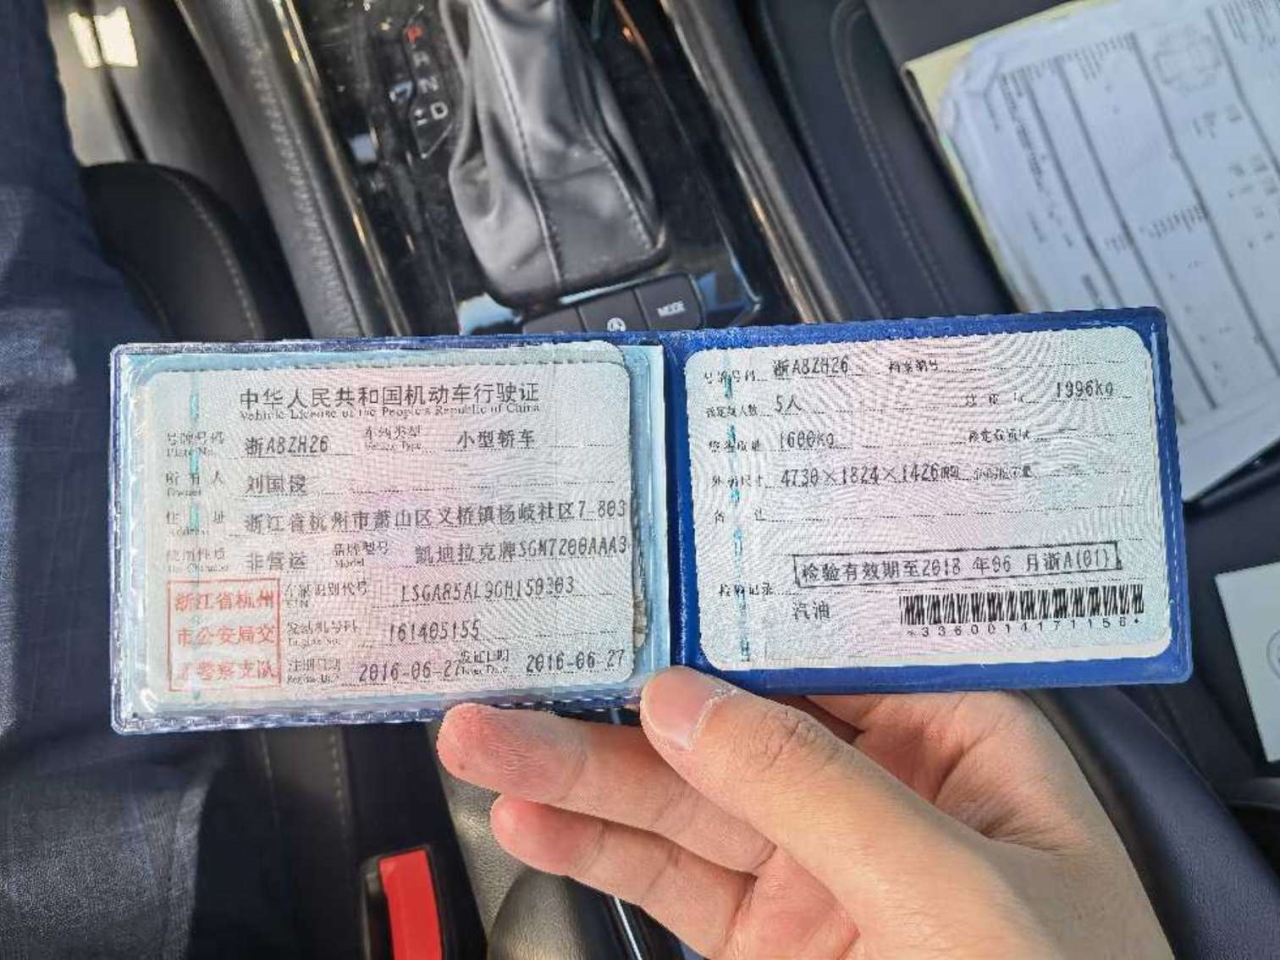 P
R
N
D
MODE
中华人民共和国机动车行驶证
Vehicle License of the People's Republic of China
号牌号码 浙A8ZH26 车辆类型 小型轿车
Plate No.
所有人 刘国俊
Owner
住址 浙江省杭州市萧山区义桥镇杨岐社区7-803
Address
使用性质 非营运 品牌型号 凯迪拉克牌SGM7200AAA3
Use Character Model
浙江省杭州
市公安局交
通警察支队
车辆识别代号 LSGAR5AL9GH150303
VIN
发动机号码 161405155
Engine No.
注册日期 2016-06-27 发证日期 2016-06-27
Register Date Issue Date
号牌号码 浙A8ZH26 档案编号
核定载人数 5人 总质量 1996kg
整备质量 1600kg 核定载质量
外廓尺寸 4730×1824×1426mm 准牵引总质量
备注
检验有效期至2018年06月浙A(01)
检验记录
汽油
*3360014171156*